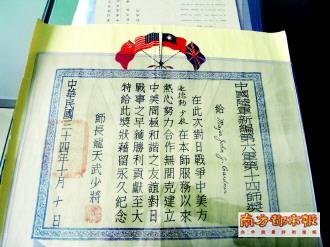 中國陸軍新編第六軍第十四師獎
給 Major John J.
在此次對日戰爭中美方
少校 在本師服務以來
熱心努力合作無間克建立
中美間極和諧之友誼對日
戰事之早 勝利貢獻至大
特給此獎狀藉留永久紀念
師長龍天武少將
中華民國三十四年十月十日
南方都市报